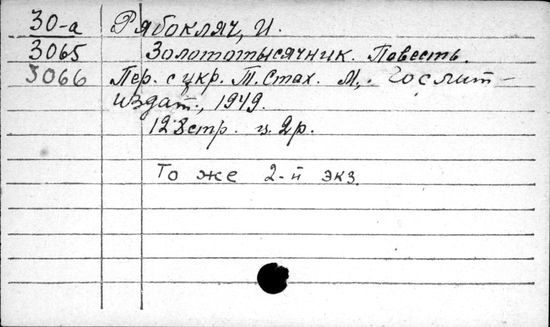 30-а Рябокляч, И.
3065 Золототысячник. Повесть.
3066 Пер. с укр. Т. Стах. М., Гослит-
издат, 1949.
128 стр. ц. 2 р.
То же 2-й экз.